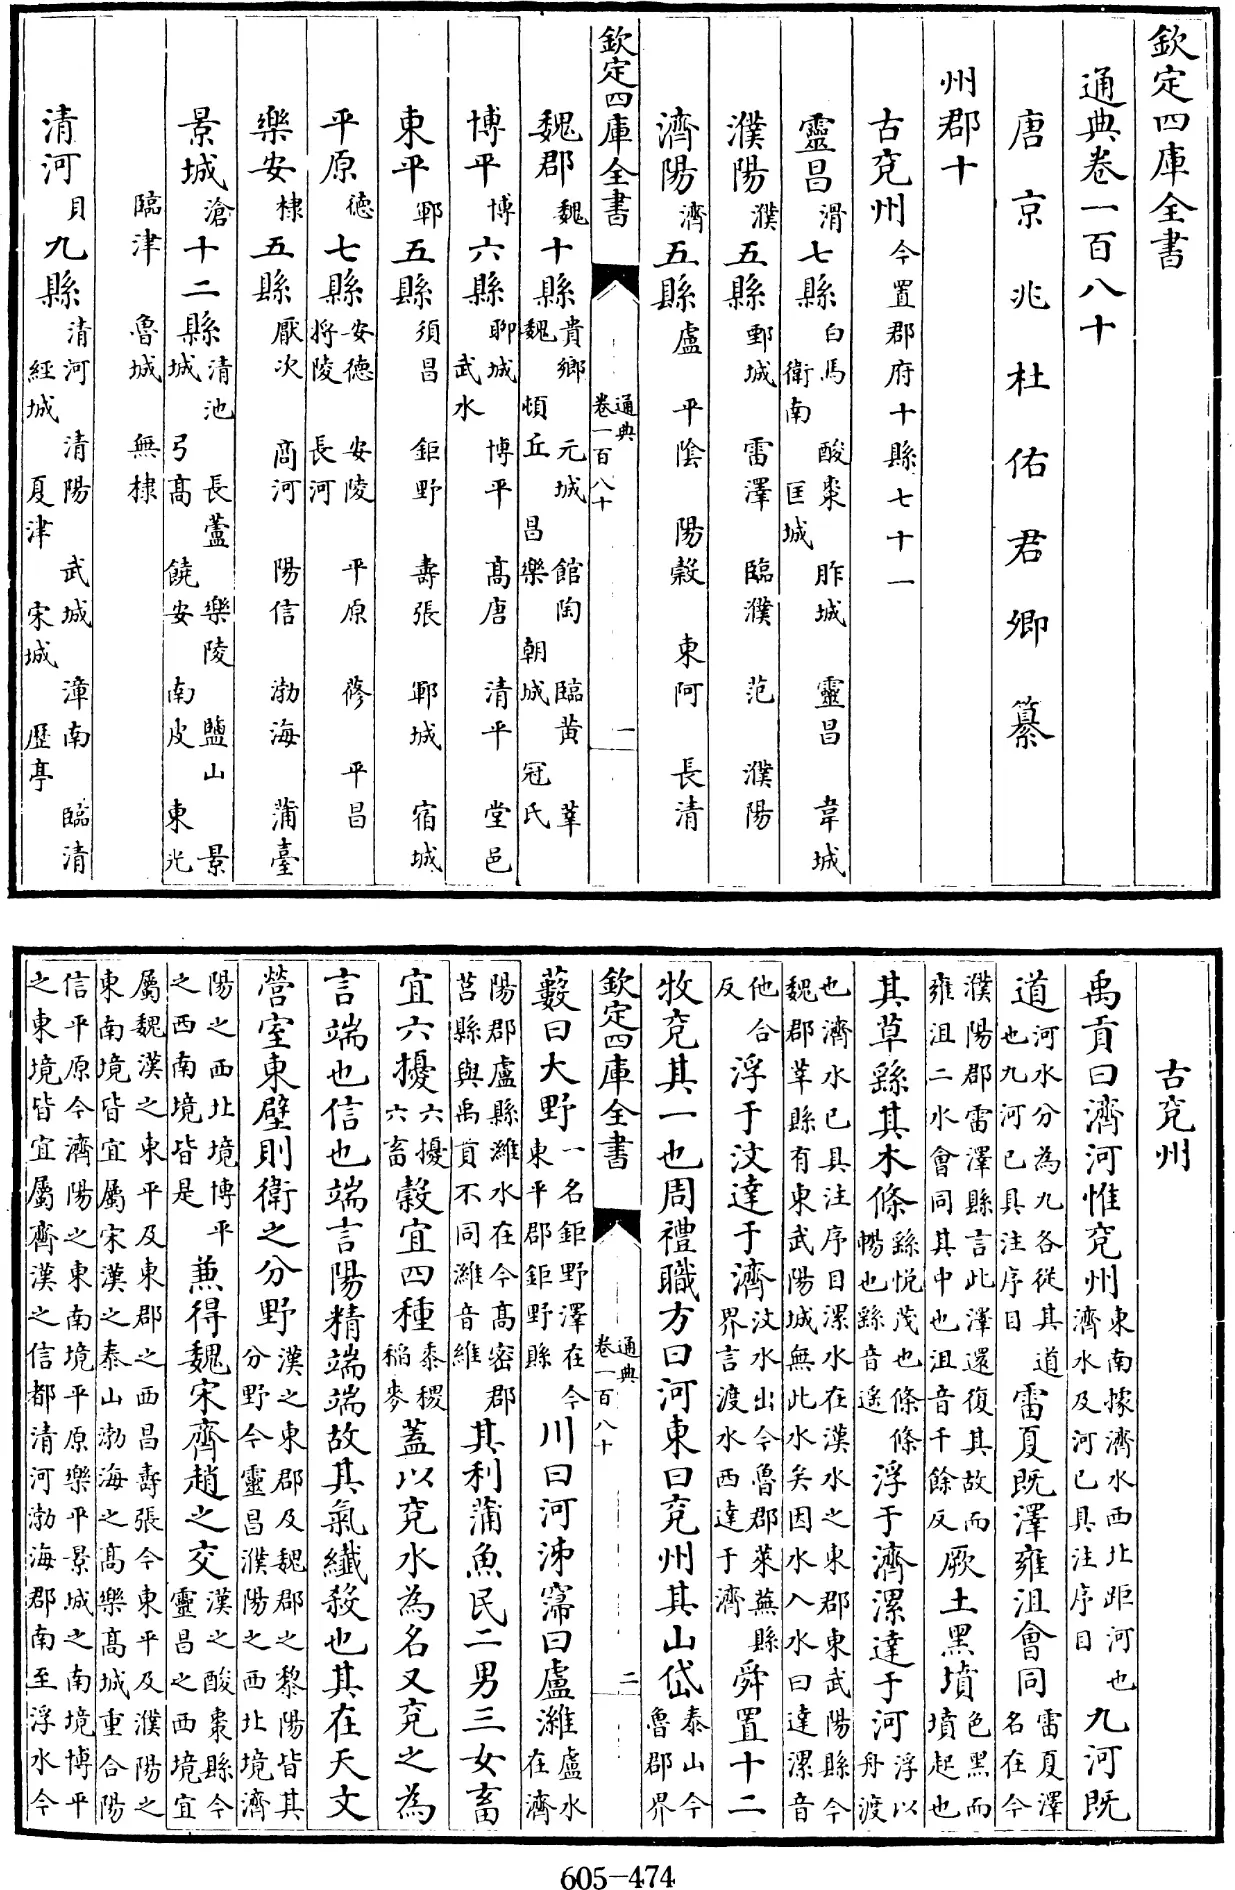 欽定四庫全書
通典卷一百八十
唐京兆杜佑君卿纂
州郡十
古兗州今置郡府十縣七十一
靈昌滑七縣白馬 酸棗 胙城 靈昌 韋城 衛南 匡城
濮陽濮五縣鄄城 雷澤 臨濮 范 濮陽
濟陽濟五縣盧 平陰 陽穀 東阿 長清
欽定四庫全書 通典卷一百八十 一
魏郡魏十縣貴鄉 元城 館陶 臨黃 莘 魏 頓丘 昌樂 朝城 冠氏
博平博六縣聊城 博平 高唐 清平 堂邑 武水
東平鄆五縣須昌 鉅野 壽張 鄆城 宿城
平原德七縣安德 安陵 平原 蓚 平昌 將陵 長河
樂安棣五縣厭次 商河 陽信 渤海 蒲臺
景城滄十二縣清池 長蘆 樂陵 鹽山 景城 弓高 饒安 南皮 東光
臨津 魯城 無棣
清河貝九縣清河 清陽 武城 漳南 臨清 經城 夏津 宋城 歷亭
古兗州
禹貢曰濟河惟兗州東南據濟水西北距河也濟水及河已具注序目九河既
道河水分為九各從其道也九河已具注序目雷夏既澤雍沮會同雷夏澤名在今
濮陽郡雷澤縣言此澤還復其故而雍沮二水會同其中也沮音千餘反厥土黑墳色黑而墳起也
其草繇其木條繇悅茂也條條暢也繇音遙浮于濟漯達于河浮以舟渡
也濟水已具注序目漯水在漢水之東郡東武陽縣今魏郡莘縣有東武陽城無此水矣因水入水曰達漯音
他合反浮于汶達于濟汶水出今魯郡萊蕪縣界言渡水西達于濟舜置十二
牧兗其一也周禮職方曰河東曰兗州其山岱泰山今魯郡界
欽定四庫全書 通典卷一百八十 二
藪曰大野一名鉅野澤在今東平郡鉅野縣川曰河泲霈曰盧濰盧水在濟
陽郡盧縣濰水在今高密郡莒縣與禹貢不同濰音維其利蒲魚民二男三女畜
宜六擾六擾六畜穀宜四種黍稷稻麥蓋以兗水為名又兗之為
言端也信也端言陽精端端故其氣纖殺也其在天文
營室東壁則衛之分野漢之東郡及魏郡之黎陽皆其分野今靈昌濮陽之西北境濟
陽之西北境博平之西南境皆是兼得魏宋齊趙之交漢之酸棗縣今靈昌之西境宜
屬魏漢之東平及東郡之西昌壽張今東平及濮陽之東南境皆宜屬宋漢之泰山渤海之高樂高城重合陽
信平原今濟陽之東南境平原樂平景城之南境博平之東境皆宜屬齊漢之信都清河渤海郡南至浮水今
605-474